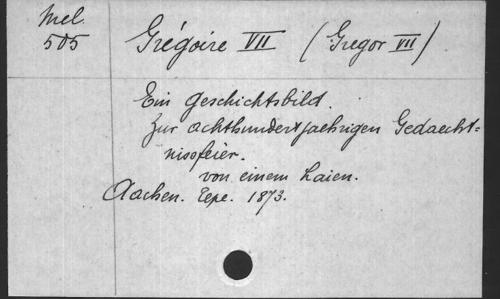 Mel. 505
Grégoire VII (Gregor VII)
Ein Geschichtsbild.
Zur achthundertjaehrigen Gedaecht=
nissfeier.
von einem Laien.
Aachen. 1873.